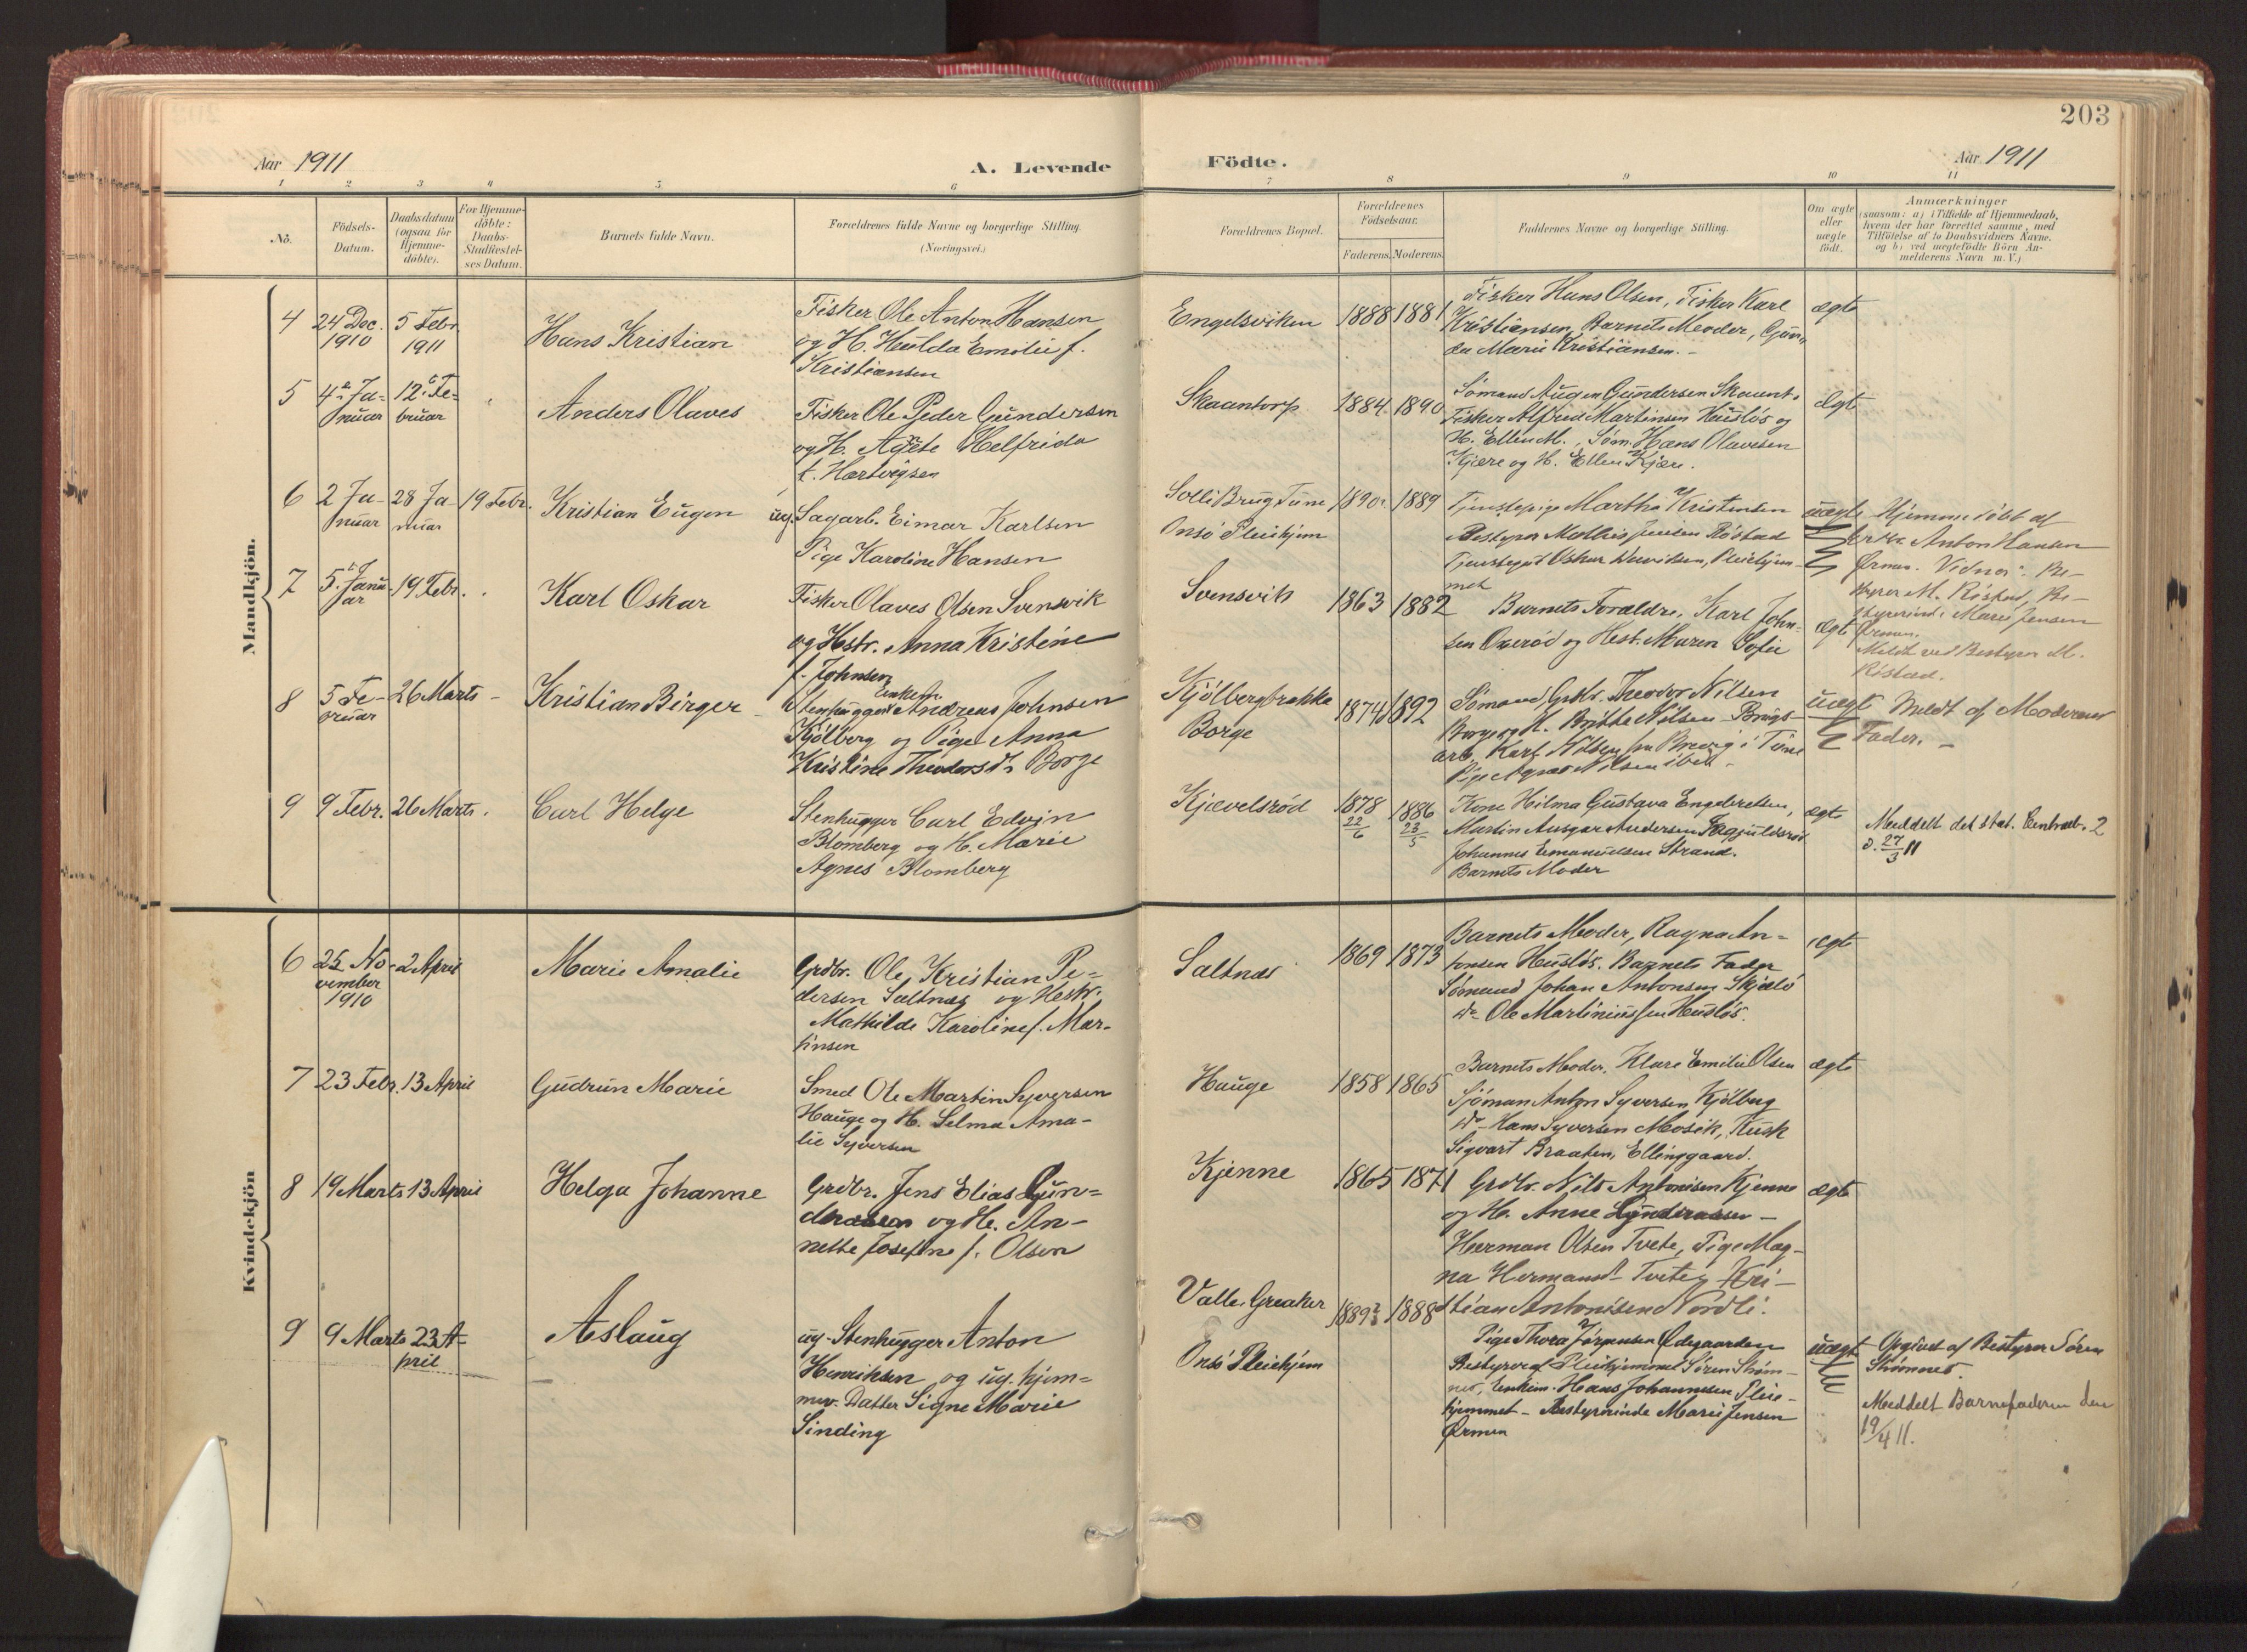 203
Aar 1911
A. Levende
Födte.
Aar 1911
1 2 3 4 5 6 7 8 9 10 11
No.
Födsels-
Datum.
Daabsdatum
(ogsaa for
Hjemme-
döbte).
For Hjemme-
döbte:
Daabs-
Stadfæstel-
ses Datum.
Barnets fulde Navn.
Forældrenes fulde Navne og borgerlige Stilling.
(Næringsvei.)
Forældrenes Bopæl.
Forældrenes
Födselsaar.
Faderens. Moderens.
Faddernes Navne og borgerlige Stilling.
Om ægte
eller
uægte
födt.
Anmærkninger
(saasom: a) i Tilfælde af Hjemmedaab,
hvem der har forrettet samme, med
Tilföielse af to Daabsvidners Navne.
og b) ved uægtefödte Börn An-
melderens Navn m. V.)
Mandkjön.
4
24 Dec.
1910
5 Febr.
1911
Hans Kristian
Fisker Ole Anton Hansen
og H. Hulda Emilie f.
Kristiansen
Engelsviken
1888
1881
Fisker Hans Olsen, Fisker Karl
Kristiansen, Barnets Moder, Gun-
da Marie Kristiansen. -
ægte
5
4de Ja-
nuar
12te Fe-
bruar
Anders Olaves
Fisker Ole Peder Gundersen
og H. Agnete Helfrida
f. Hartvigsen
Skaantorp
1884.
1890
Sømand Augen Gundersen Skaant.
Fisker Alfred Martinsen Husløs og
H. Ellen M., Søm. Hans Olavesen
Kjære og H. Ellen Kjære.
ægte
6
2 Ja-
nuar
28 Ja-
nuar
19 Febr.
Kristian Eugen
ug. Sagarb. Eimar Karlsen
Pige Karoline Hansen
Solli Brug Tune
Onsö Pleiehjem
1890.
1889
Tjenestepige Martha Kristensen
Bestyrer Mathis Jensen Röstad
Tjenestegut Oskar Davidsen, Pleiehjem-
met
uægte
Hjemmedöbt af
Anton Hansen
Ørmen. Vidner: Be-
styrer M. Röstad, Be-
styrerinde Marie Jensen
Ørmen.
Meldt ved Bestyrer M.
Röstad.
7
5te Janu-
ar
19 Febr.
Karl Oskar
Fisker Olaves Olsen Svensvik
og Hstr. Anna Kristine
f. Johnsen
Svensvik
1863
1882
Barnets Forældre, Karl John-
sen Oxerød og Hest. Maren Sofie
ægte
8
5 Fe-
bruar
26 Marts
Kristian Birger
Enkem.
Stenhugger Andreas Johnsen
Kjölberg og Pige Anna
Kristine Theodorsd. Borge
Kjölbergbrakka
Borge
1874
1892
Sömand Grdbr. Theodor Nilsen
Borge og H. Britte Nilsen - Brugs-
arb. Karl Nilsen fra Brevig i Tune
Pige Agnes Nilsen ibid -
uægte
Meldt af Moderens
Fader. -
9
9 Febr.
26 Marts.
Carl Helge
Stenhugger Carl Edvin
Blomberg og H. Marie
Agnes Blomberg
Kjævelsrød
1878
22/6
1886
23/5
Kone Hilma Gustava Engebretsen,
Martin Ansgar Andersen
Johannes Emanuelsen Strand.
Barnets Moder
ægte
Meddelt det stat. Centralb. 2
d. 27/3 11
Kvindekjön
6
25 No-
vember
1910
2 April
Marie Amalie
Grdbr. Ole Kristian Pe-
dersen Saltnæs og Hustr.
Mathilde Karoline f. Mar-
tinsen
Saltnæs
1869
1873
Barnets Moder, Ragna An-
tonsen Husløs. Barnets Fader
Sømand Johan Antonsen Skjælö
do- Ole Martiniussen Husløs.
ægte
7
23 Febr.
13 April
Gudrun Marie
Smed Ole Martin Syversen
Hauge og H. Selma Ama-
lie Syversen
Hauge
1858
1865
Barnets Moder, Klare Emilie Olsen
Sjöman Anton Syversen Kjölberg
do- Hans Syversen Mosik, Kusk
Sigvart Braaten, Ellinggaard.
ægte
8
19 Marts
13 April
Helga Johanne
Grdbr. Jens Elias Gun-
dersen og H. An-
nette Josefine f. Olsen
Kjenne
1865
1871
Grdbr. Nils Antonisen Kjenne
og H. Anne Gundersen -
Herman Olsen Tvete, Pige Mag-
na Hermansd. Tvete, Kri-
stian Antonisen Nordli.
ægte
9
9 Marts
23 A-
pril
Aslaug
ug. Stenhugger Anton
Henriksen og ug. hjem-
mev. Datter Signe Marie
Sinding
Valle, Greaker
Onsö Pleiehjem
1889
1888
Pige Thora Jörgensen Ødegaarden
Bestyrer af Pleiehjemmet Sören Strøm-
nes, Enkem. Hans Johannesen Pleie-
hjemmet - Bestyrerinde Marie Jensen
Ørmen
uægte
Opgivet af Bestyrer Sören
Strömnes.
Meddelt Barnefaderen den
19/4 11.